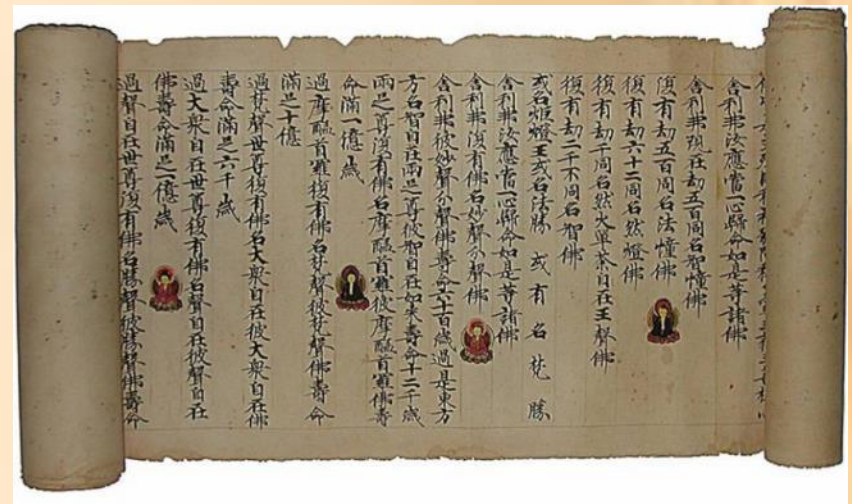 舍利弗汝應當一心歸命如是等諸佛
舍利弗現在劫五百同名智幢佛
復有劫五百同名法幢佛
復有劫六十二同名然燈佛
復有劫千同名然火單荼自在王聲佛
復有劫二千不同名智佛
或名姬燈王或名法勝或有名梵勝
舍利弗汝應當一心歸命如是等諸佛
舍利弗復有佛名妙聲分聲佛
舍利弗彼妙聲分聲佛壽命六十百歲過是東方
方名智自在兩足尊彼智自在如來壽命十二千歲
兩足尊復有佛名摩醯首羅彼摩醯首羅佛壽
命滿一億歲
過摩醯首羅復有佛名梵聲彼梵聲佛壽命
滿足十億
過梵聲世尊復有佛名大衆自在彼大衆自在佛
壽命滿足六千歲
過大衆自在世尊復有佛名聲自在彼聲自在
佛壽命滿足一億歲
過聲自在世尊復有佛名勝聲彼勝聲佛壽命